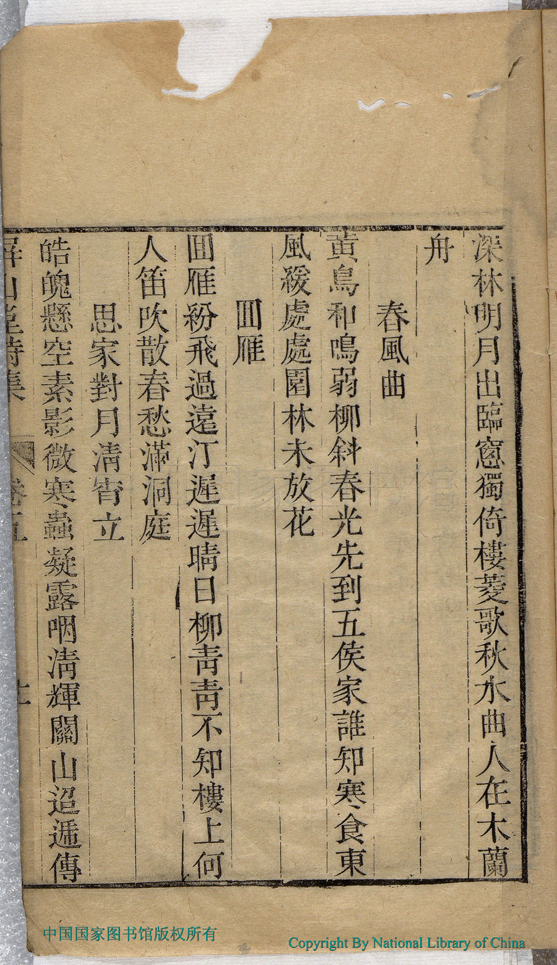 深林明月出臨窻獨倚樓菱歌秋水曲人在木蘭
舟
春風曲
黃鳥和鳴弱柳斜春光先到五侯家誰知寒食東
風緩處處園林未放花
囬雁
囬雁紛飛過遠汀遲遲晴日柳青青不知樓上何
人笛吹散春愁滿洞庭
思家對月清宵立
皓魄懸空素影微寒蟲凝露咽清輝關山迢遞傳
屏山堂詩集
卷五
中国国家图书馆版权所有
Copyright By National Library of China